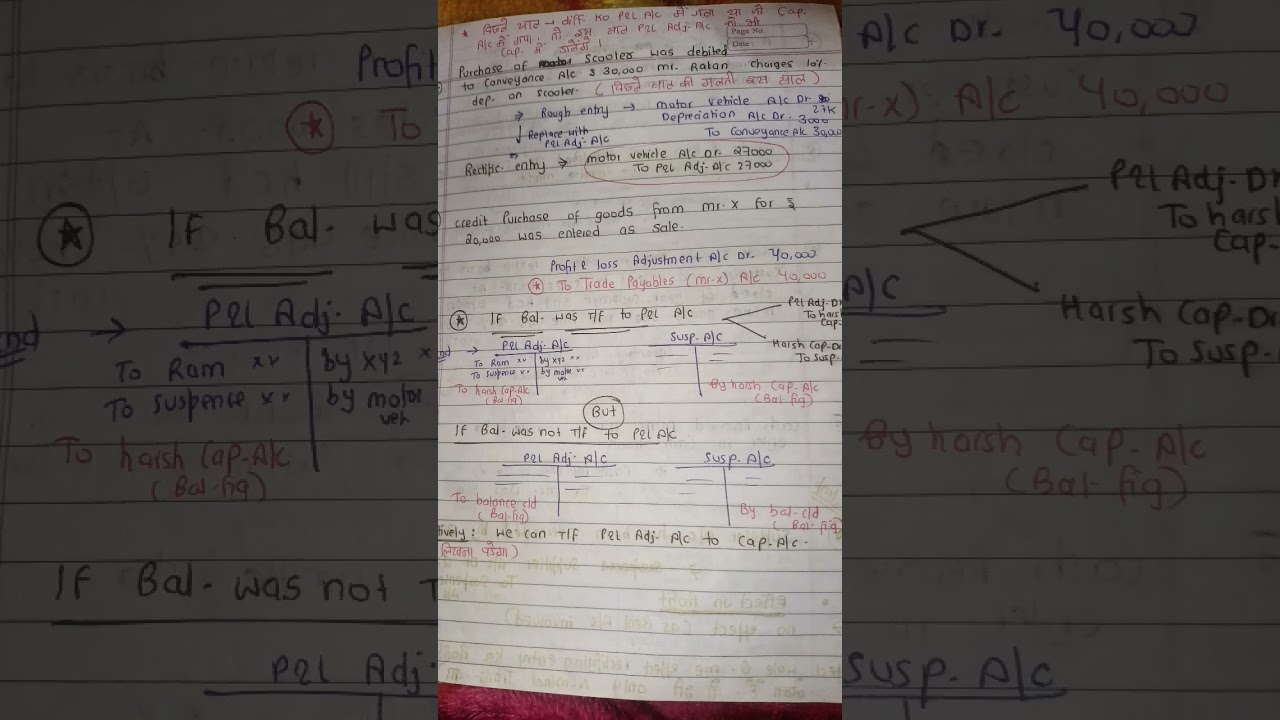 ★ पिछले साल → diff. को P&L A/c में गया था जो Cap.
A/c में गया, तो इस साल P&L Adj-A/c को भी
Cap. में डालेंगे।
Page No.
Date:
Purchase of scooter was debited
to Conveyance A/c ₹ 30,000 mr. Ratan charges 10%
dep. on scooter. (पिछले साल की गलती इस साल)
⇒ Rough entry → motor vehicle A/c Dr. 27K
Depreciation A/c Dr. 3000
To Conveyance A/c 30,000
↓ Replace with
P&L Adj-A/c
Rectific. entry ⇒ motor vehicle A/c Dr. 27000
To P&L Adj-A/c 27000
credit Purchase of goods from mr-X for ₹
20,000 was entered as sale.
Profit & loss Adjustment A/c Dr. 40,000
★ To Trade Payables (mr-x) A/c 40,000
★ IF Bal- was T/F to P&L A/c
P&L Adj-Dr
To harsh
Cap-
Harsh Cap-Dr
To Susp-
→ P&L Adj-A/c
To Ram xx by xyz xx
To suspence xx by motor veh
To harsh Cap-A/c
(Bal-fig)
Susp-A/c
By harsh Cap-A/c
(Bal-fig)
But
IF Bal-was not T/F to P&L A/c
P&L Adj-A/c Susp-A/c
To balance c/d
(Bal-fig)
By bal-c/d
(Bal-fig)
tively: we can T/F P&L Adj-A/c to Cap-A/c-
लिखना पड़ेगा)